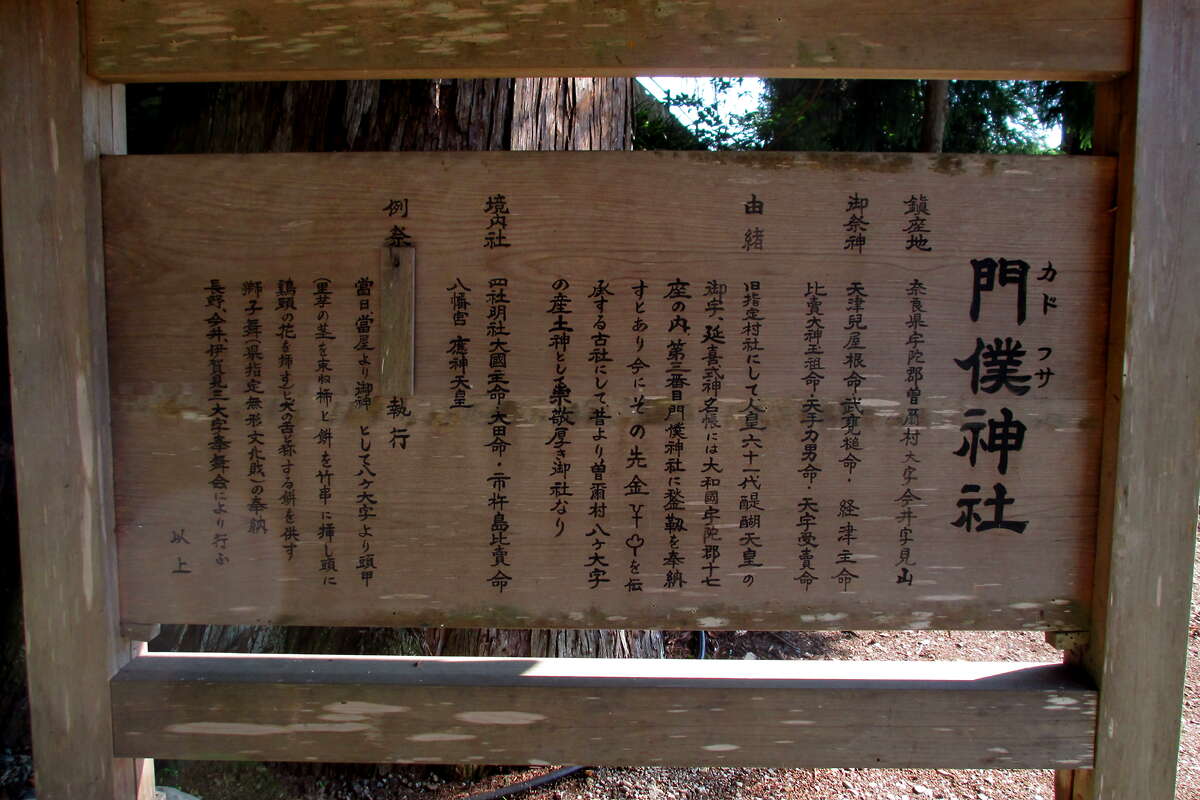 カド フサ
門僕神社
鎮座地 奈良県宇陀郡曽爾村大字今井字見山
御祭神 天津児屋根命・武甕槌命・経津主命
比賣大神玉祖命・天手力男命・天宇受賣命
由緒 旧指定村社にして人皇六十一代醍醐天皇の
御宇、延喜式神名帳には大和國宇陀郡十七
座の内、第三番目門僕神社に鍬靱を奉納
すとあり今にその先金を伝
承する古社にして昔より曽爾村八ヶ大字
の産土神として崇敬厚き御社なり
境内社 四社明社大國主命・太田命・市杵島比賣命
八幡宮 應神天皇
例祭 執行
當日當屋より御神 として八ヶ大字より頭甲
(里芋の茎)を束ね柿と餅を竹串に挿し頭に
鶏頭の花を挿す)と称する餅を供す
獅子舞(県指定無形文化財)の奉納
長野、今井、伊賀見三大字奉舞会により行ふ
以上